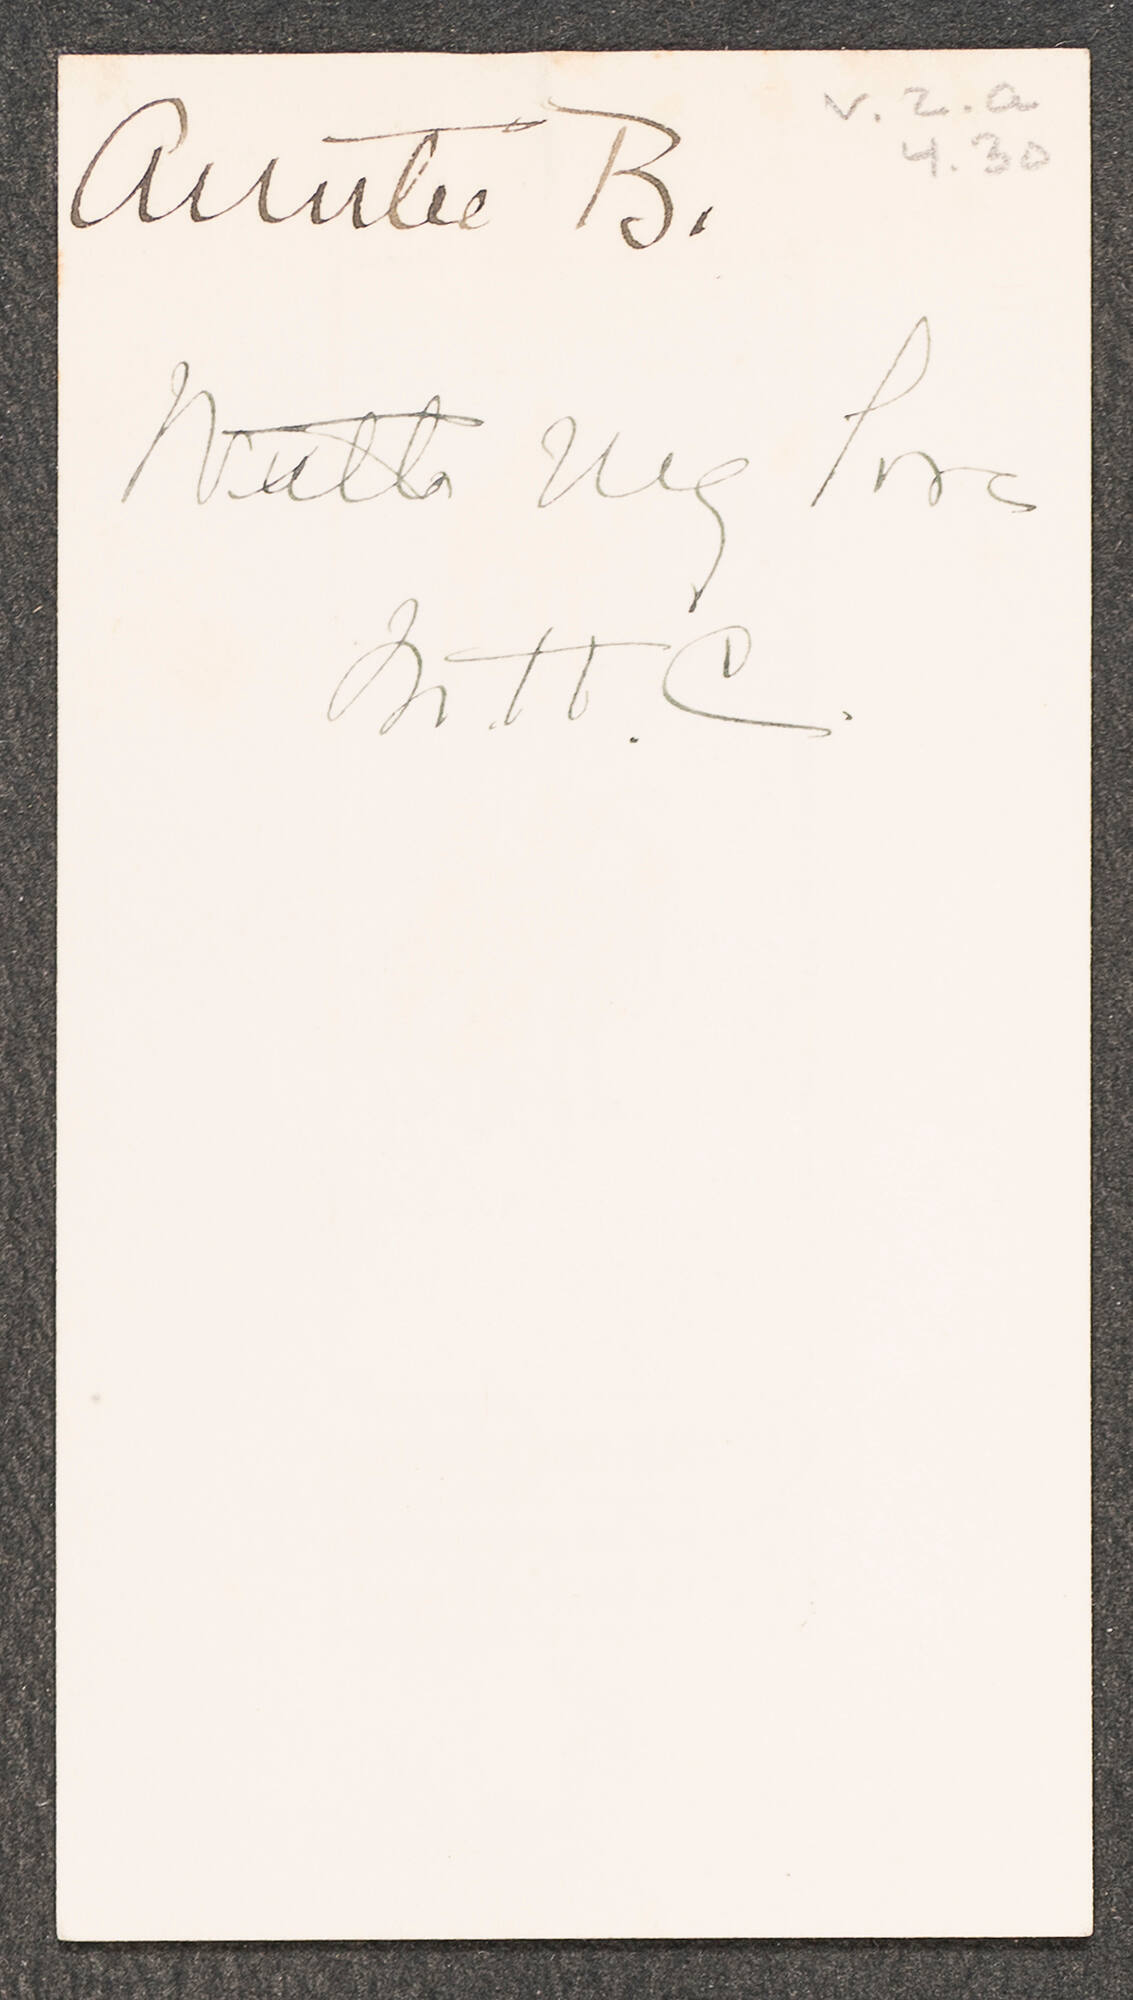 Auntie B.
v. 2. a
4.30
With my love
M. H. C.